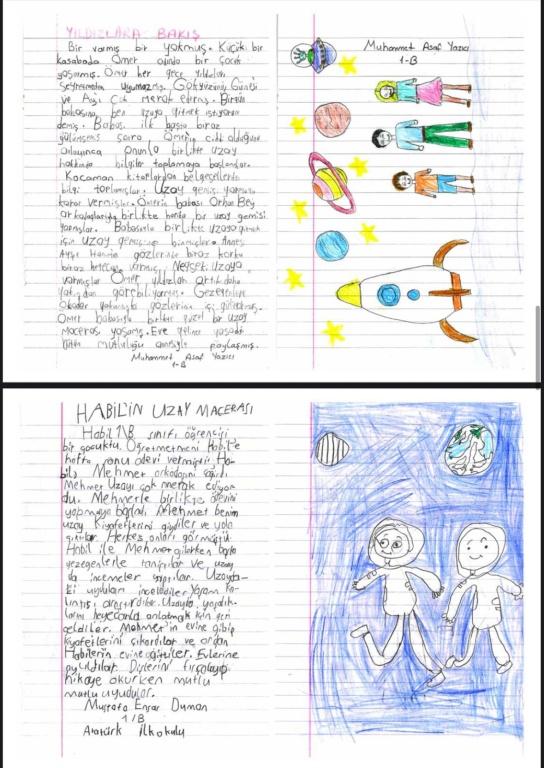 YILDIZLARA BAKIŞ
Bir varmış bir yokmuş. Küçük bir
kasabada Ömer adında bir çocuk
yaşarmış. Ömer her gece yıldızları
seyretmeden uyumazmış. Gökyüzünü Güneşi
ve Ayı çok merak edermiş. Birgün
babasına ben uzaya gitmek istiyorum
demiş. Babası ilk başta biraz
gülümsemiş sonra Ömerin ciddi olduğunu
anlayınca onunla birlikte uzay
hakkında bilgiler toplamaya başlamışlar.
Kocaman kitaplardan belgesellerden
bilgi toplamışlar. Uzay gemisi yapmaya
karar vermişler. Ömerin babası Orhan Bey
arkadaşlarıyla birlikte harika bir uzay gemisi
yapmışlar. Babasıyla birlikte uzaya gitmek
için uzay gemisine binmişler. Annesi
Ayşe Hanım gözlerinde biraz korku
biraz heyecan varmış. Neyseki Uzaya
varmışlar Ömer yıldızları artık daha
yakından görebiliyormuş. Gezegenlere
Okadar yakınmışki gözlerinin içi gülüyormuş.
Ömer babasıyla birlikte güzel bir uzay
macerası yaşamış. Eve gelince yaşadığı
bütün mutluluğu annesiyle paylaşmış.
Muhammet Asaf Yazıcı
1-B
Muhammet Asaf Yazıcı
1-B
HABİL'İN UZAY MACERASI
Habil 1/B sınıfı öğrencisi
bir çocuktu. Öğretmenleri Habil'e
hafta sonu ödevi vermişti. Ha-
bil, Mehmet arkadaşını çağırdı.
Mehmet Uzayı çok merak ediyor-
du. Mehmetle birlikte ödevini
yapmaya başladı. Mehmet benim
uzay Kıyafetlerini giydiler ve yola
çıktılar. Herkes onları görmüştü.
Habil ile Mehmet giderken başka
gezegenlerle tanıştılar ve uzay
da incemeler yaptılar. Uzayda-
ki uyduları incelediler Yaşam ka-
lıntısı araştırdılar. Uzayda yaptık-
larını heyecanla anlatmak için geri
geldiler. Mehmet'in evine gidip
kıyafetlerini çıkardılar ve ordan
Habilerin evine gittiler. Evlerine
ayrıldılar. Dişlerini fırçalayıp
hikaye okurken mutlu
mutlu uyudular.
Mustafa Ensar Duman
1/B
Atatürk İlkokulu